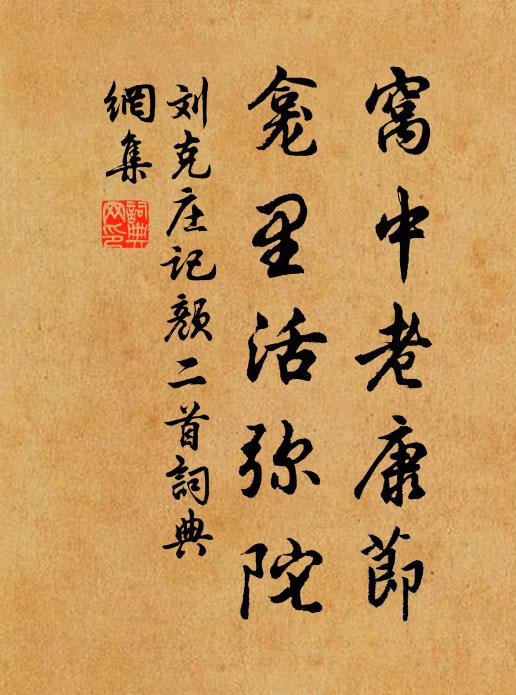 窩中老康節
龕里活弥陀
刘克庄记颜二首詞典
網集
詞典
网印